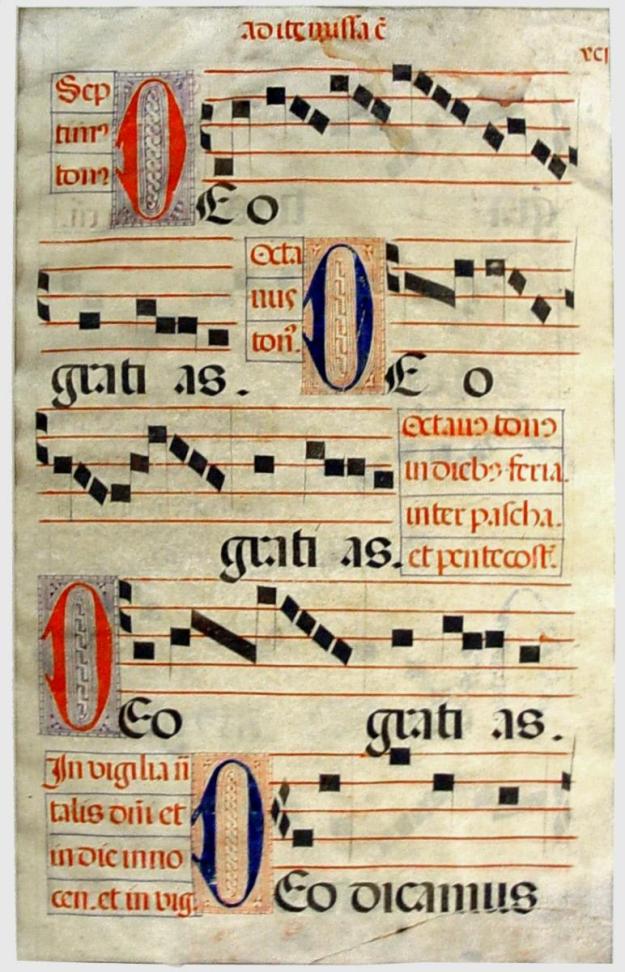 ad ite missa ē
xcj
Sep
timꝰ
tonꝰ
DEo
grati as.
Octa
uuſ
tonꝰ.
DE o
grati as.
Octauꝰ tonꝰ
in diebꝫ feria.
inter paſcha.
et pentecoſt.
DEo grati as.
In vigilia n̄
talis dn̄i et
in die inno
cen. et in vig.
DEo dicamus